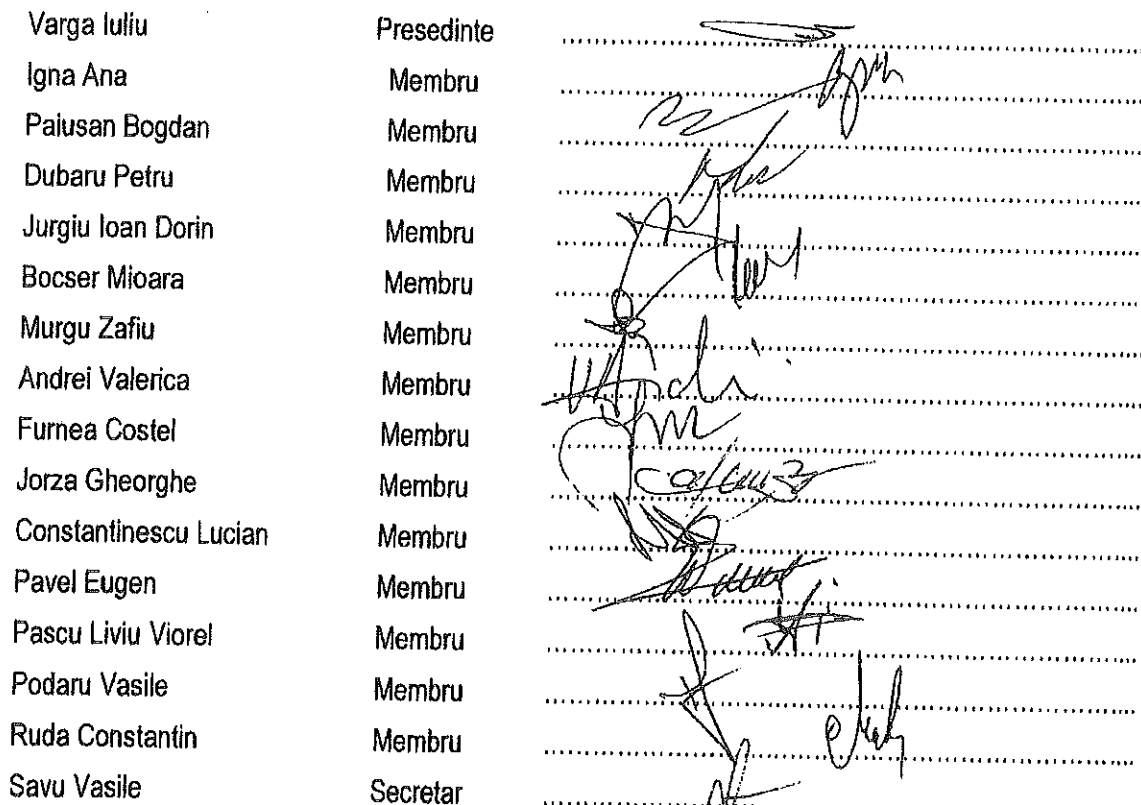 Varga Iuliu Presedinte
Igna Ana Membru
Paiusan Bogdan Membru
Dubaru Petru Membru
Jurgiu Ioan Dorin Membru
Bocser Mioara Membru
Murgu Zafiu Membru
Andrei Valerica Membru
Furnea Costel Membru
Jorza Gheorghe Membru
Constantinescu Lucian Membru
Pavel Eugen Membru
Pascu Liviu Viorel Membru
Podaru Vasile Membru
Ruda Constantin Membru
Savu Vasile Secretar